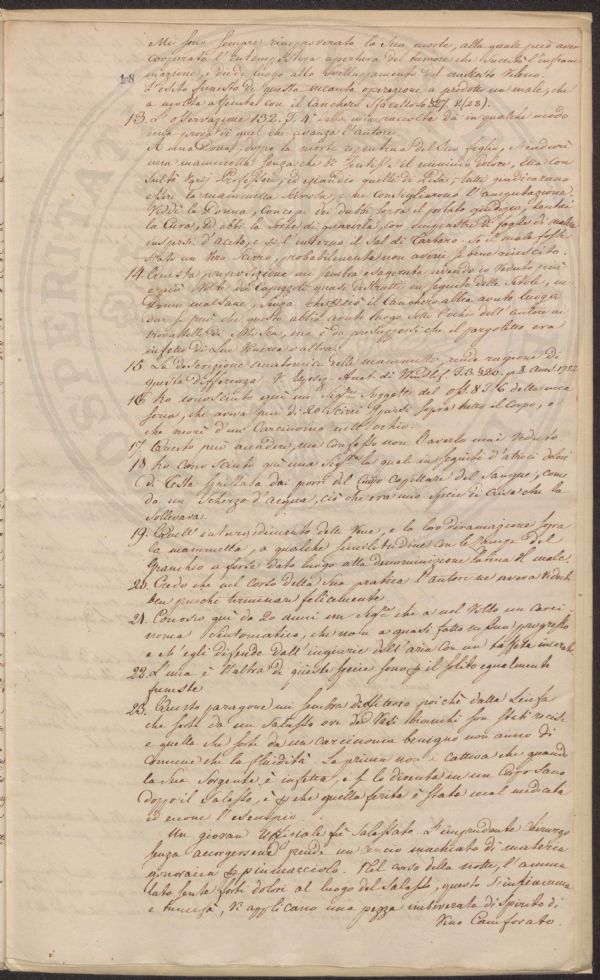 Mi sono sempre rimproverato la sua morte, alla quale può aver
cooperato l'intempestiva apertura del tumore che suscitò l'infiam
mazione, e diede luogo allo sviluppamento del
18
L'esito funesto di questa incauta operazione a prodotto un male, che
a molta affinità con il Canchero Sfacelloso
13. L'osservazione 132. T. 4° della mia raccolta dà in qualche modo
una prova di quel che avanza l'autore.
A una Dona, dopo la morte repentina del suo figlio, s'indurì
una mammella senza che vi sentisse il minimo dolore, ella con
sultò varj Professori, ed eziandio quelli di tutti giudicarono
essere la mammella Scirrosa, e ne consigliarono l'amputazione.
Vidi la Donna, concepì dei dubbi sopra il portato giudizio, tentai
la Cura, ed ebbi la sorte di guarirla, con di foglie di malva
inspersi d'Aceto, e per l'interno il Sal di Tartaro. Se il male fosse
stato un vero Scirro, probabilmente non averei sì bene riuscito.
14. Questa proposizione mi sembra esagerata avendo io veduto più
volte dei Capezzoli quasi distrutti in seguito delle Setole, in
Donne malsane, senza che il Canchero abbia avuto luogo
dar si può che questo abbia avuto luogo sotto l'occhio dell'Autore in
ma è da presupporsi che il pargoletto era
infetto di Lue Venerea o altra.
15. La descrizione anatomica delle mammelle rende ragione di
questa differenza. V. Anat. di T. 3. 420. p. 8. 1752.
16. Ho conosciuto qui un Sig.re Soggetto del T. 6 della mia
che aveva più di 20 Scirri sparsi sopra tutto il Corpo, e
che morì d'un Carcinoma nell'occhio.
17. Questo può accadere, ma confesso non l'averlo mai veduto
18. Ho conosciuto qui una Sig.ra la quale in seguito d'atroci dolori
di Testa grillava dai porri del Cuojo Capillare del Sangue, come
da un scherzo d'acqua, ciò che era una specie di Crisi che la
sollevava.
19. Quell'inturgedimento delle Vene, e la lor diramazione sopra
la mammella, a qualche similitudine con le del
Granchio a forse dato luogo alla denominizione Latina al male.
20. Credo che nel corso della sua pratica l'autore ne averà veduti
ben pochi terminare felicemente.
21. Conosco qui da 20 anni un Sig.re che a nel Volto un Carci
noma che non a quasi fatto nessun progresso
e ch'egli difende dall'ingiurie dell'aria con un taffetà incerato.
22. L'una è l'altra di queste specie sono per il solito egualmente
funeste
23. Questo paragone mi sembra poichè dalla Linfa
che sorte da un Salasso ove dei Vasi son stati recisi
e quella che sorte da un carcinoma benigno non anno di
comune che la fluidità. La prima non è cattiva che quando
la sua Sorgente è infetta, e se lo diventa in un Corpo Sano
dopo il Salasso, è perchè quella ferita è stata mal medicata
ed eccone l'esempio.
Un giovan Uffiziale fù Salassato. L'imprudente Chirurgo
senza accorgersene prende un macchiato di materia
per piumacciolo. Nel corso della notte, l'amma
lato sente forti dolori al luogo del Salasso, questo s'infiamma
e tumefà, vi applicano una pezza imbeverata di Spirito di
Vino Camforato.